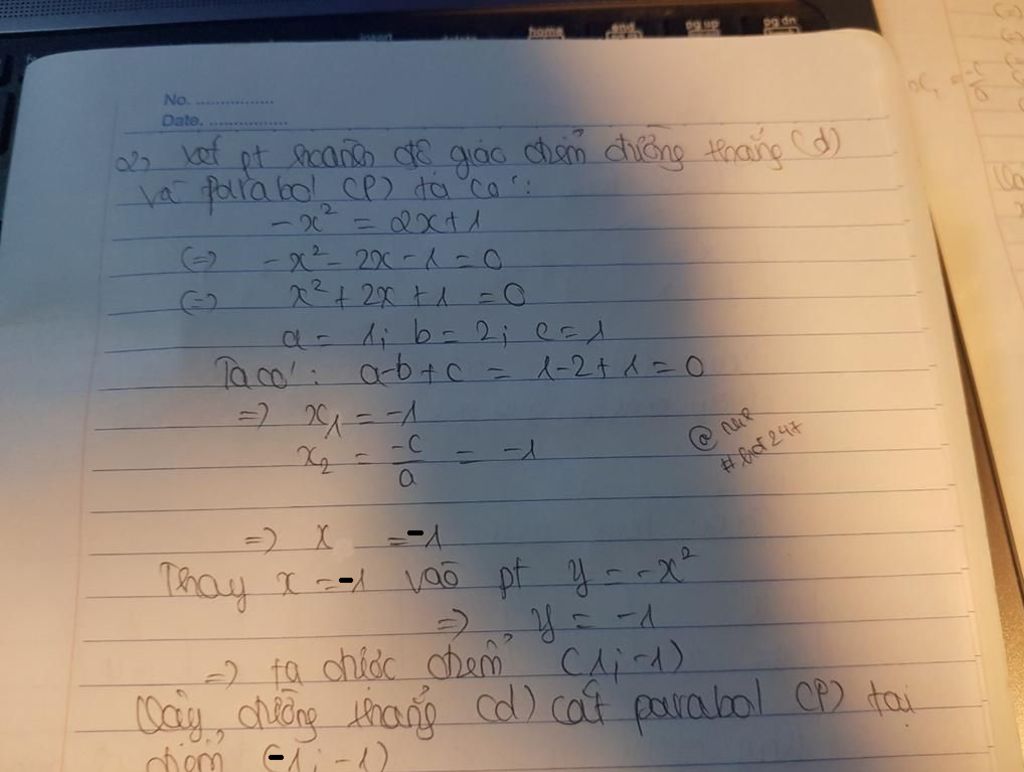 home end pg up pg dn
No. ................
Date. ................
2) Xét pt hoành độ giao điểm đường thẳng (d)
và parabol (P) ta có:
-x² = 2x+1
(=) -x² - 2x - 1 = 0
(=) x² + 2x + 1 = 0
a = 1; b = 2; c = 1
Ta có: a-b+c = 1-2+1 = 0
=> x₁ = -1
x₂ = -c/a = -1
=> x = -1
Thay x = -1 vào pt y = -x²
=> y = -1
=> ta được điểm (1; -1)
Vậy, đường thẳng (d) cắt parabol (P) tại
điểm (-1; -1)